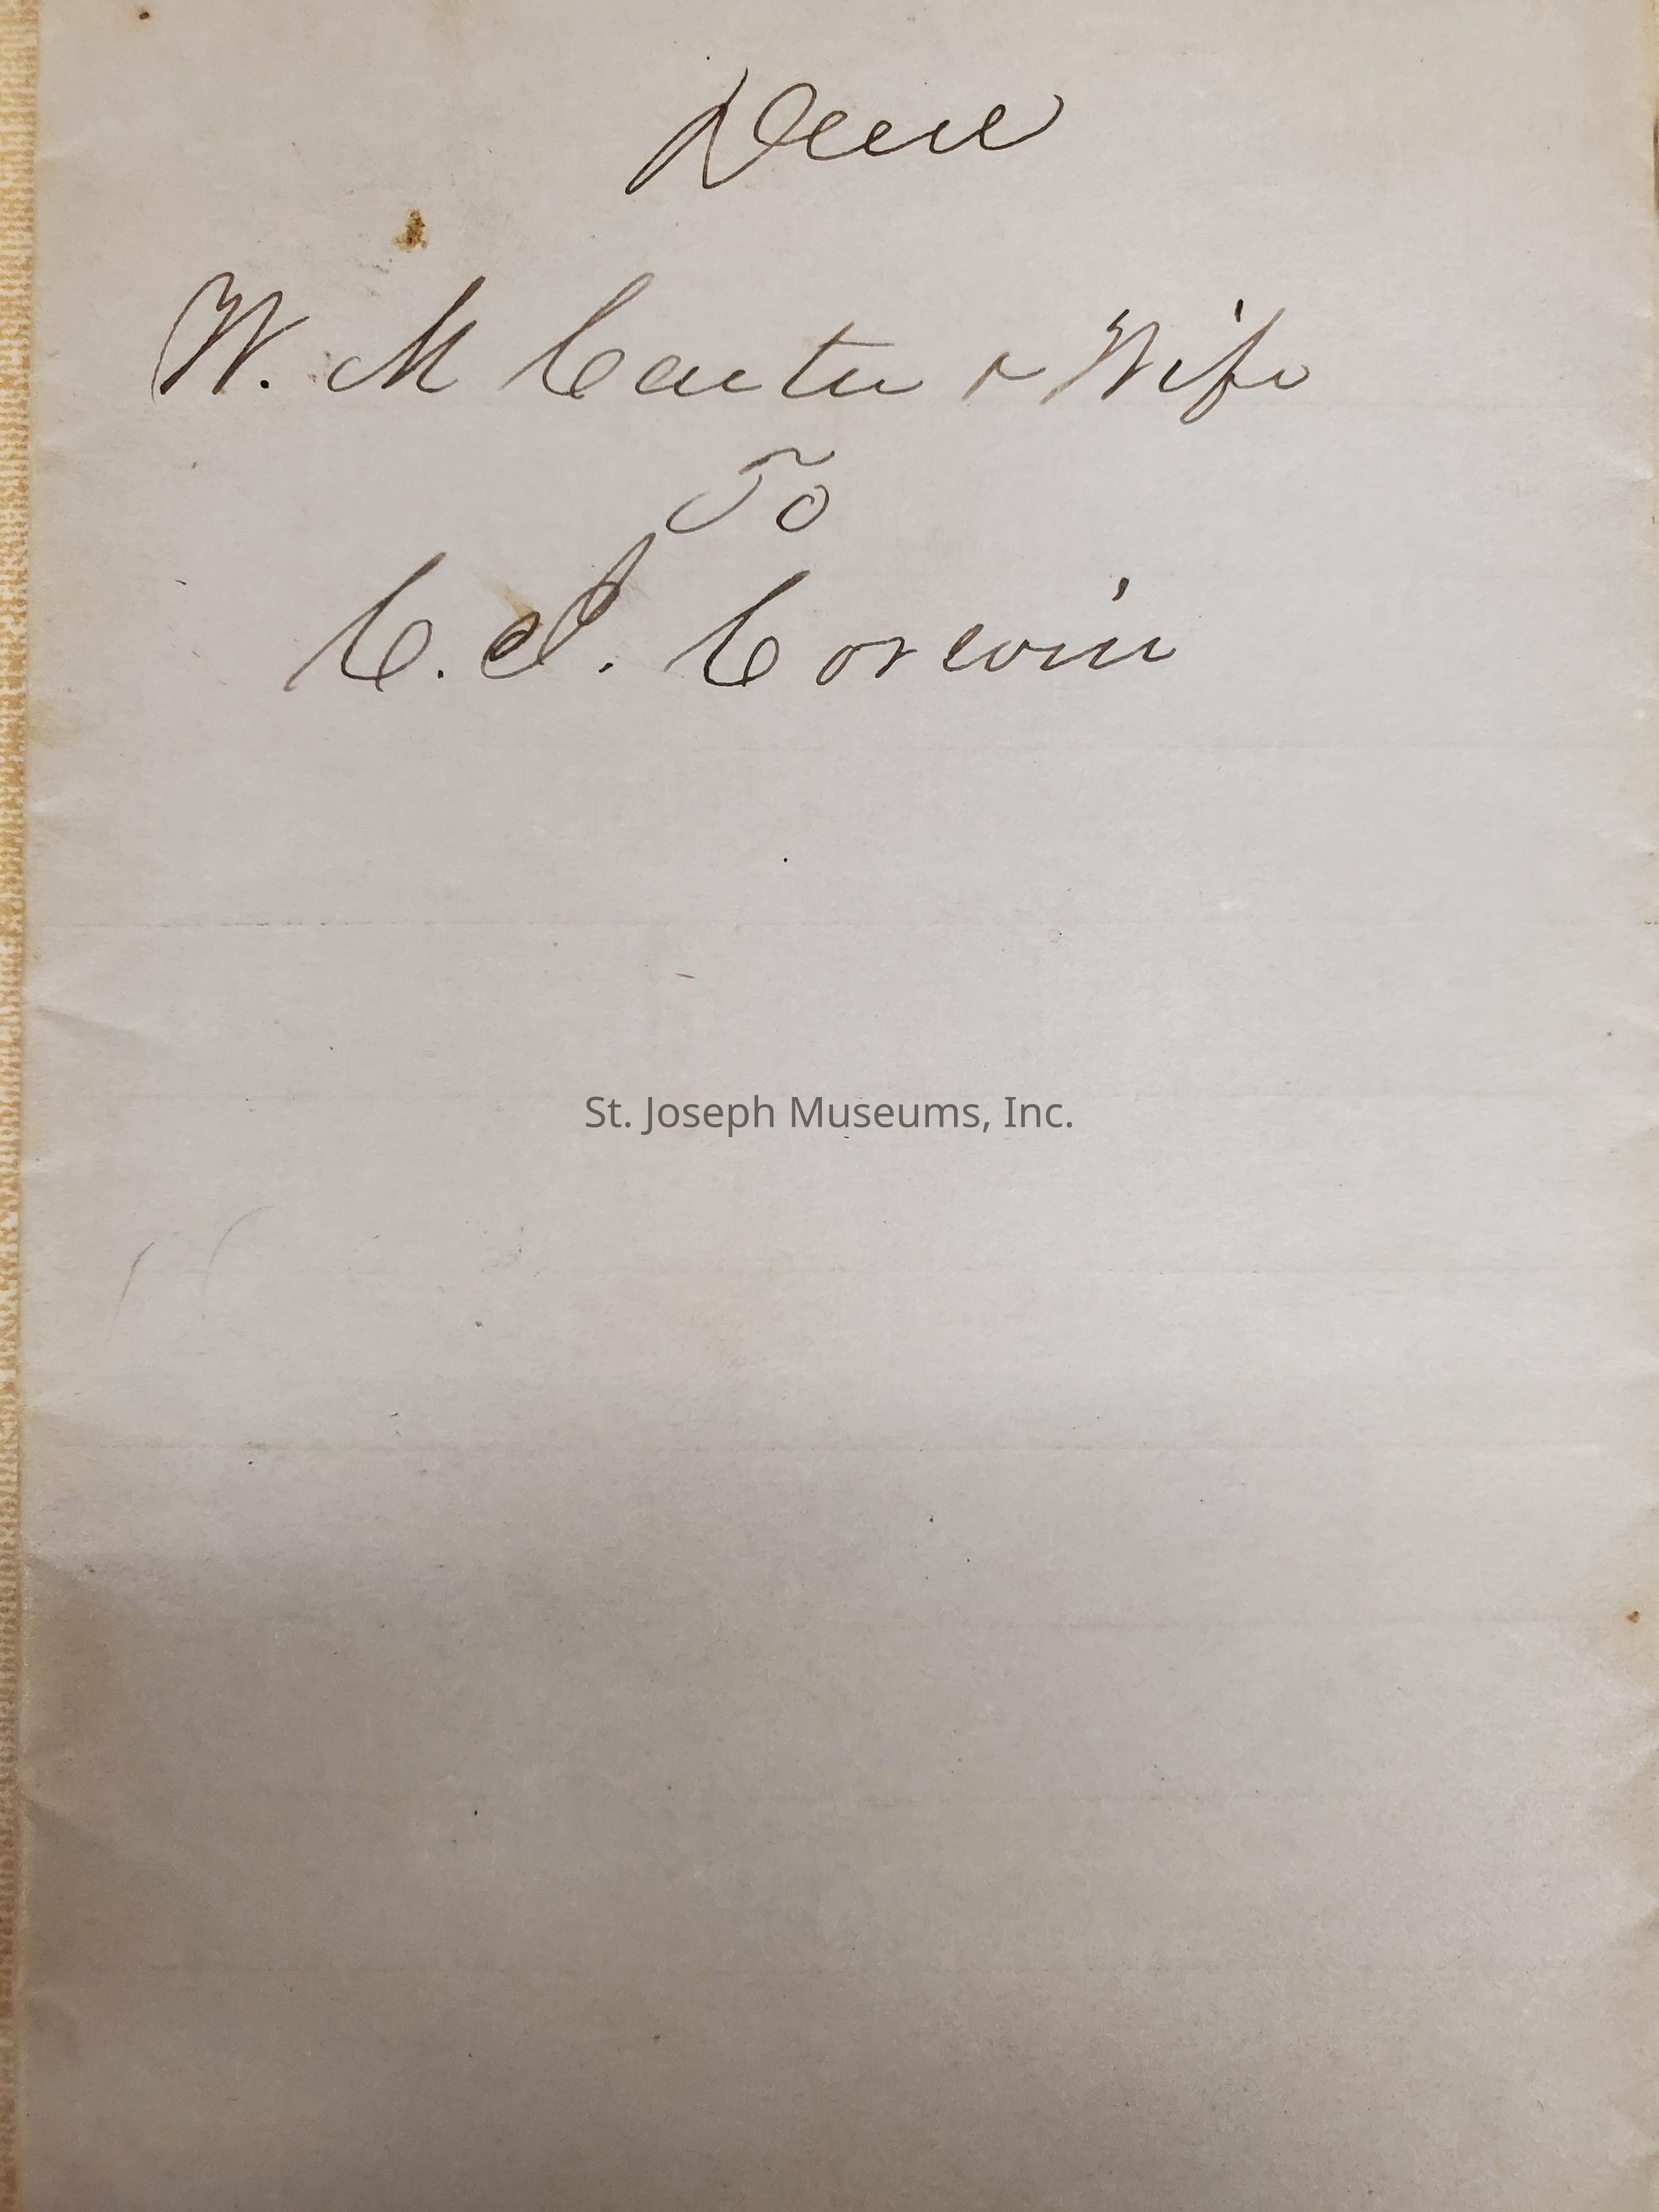 Deed
W. M Carter & Wife
To
C. S. Corwin
St. Joseph Museums, Inc.